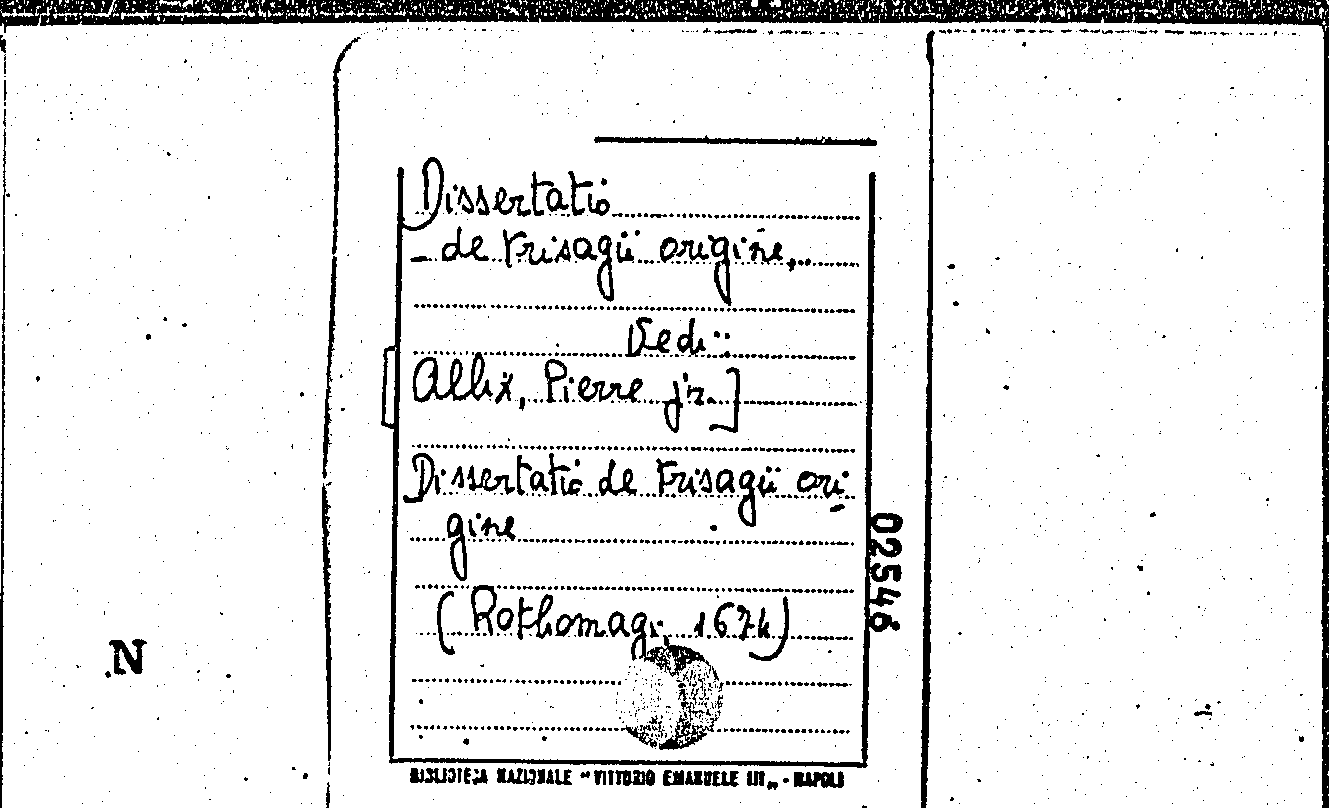 Dissertatio
- de Trisagii origine,..
Vedi:
Allix, Pierre jr.]
Dissertatio de Trisagii ori-
gine
(Rothomagi, 1674)
02546
N
BIBLIOTECA NAZIONALE "VITTORIO EMANUELE III" - NAPOLI